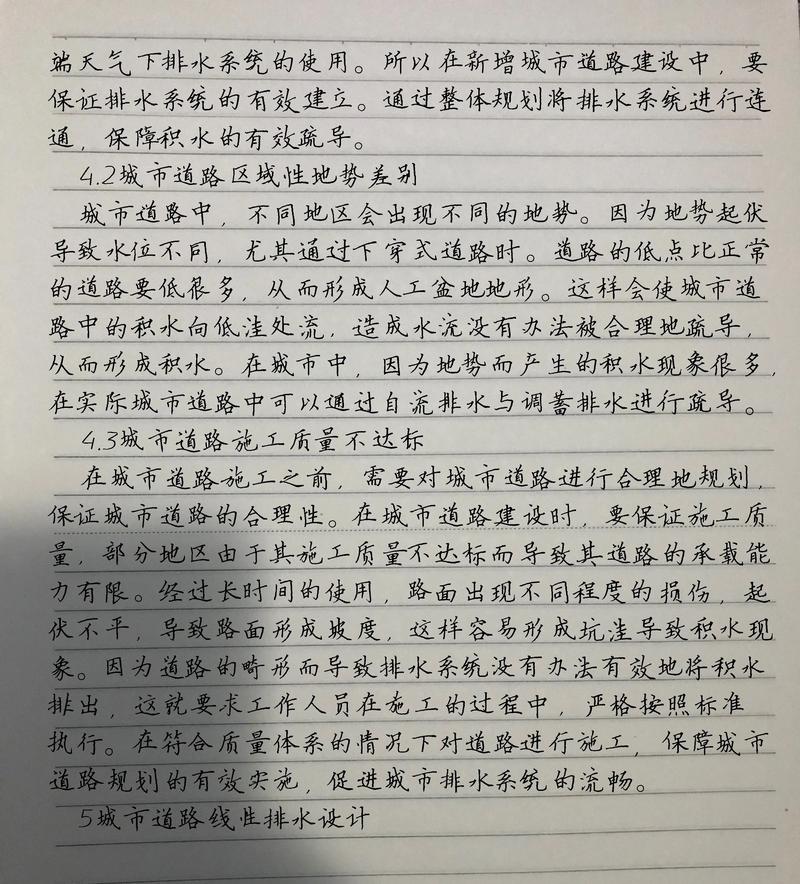 端天气下排水系统的使用。所以在新增城市道路建设中，要
保证排水系统的有效建立。通过整体规划将排水系统进行连
通，保障积水的有效疏导。
4.2城市道路区域性地势差别
城市道路中，不同地区会出现不同的地势。因为地势起伏
导致水位不同，尤其通过下穿式道路时。道路的低点比正常
的道路要低很多，从而形成人工盆地地形。这样会使城市道
路中的积水向低洼处流，造成水流没有办法被合理地疏导，
从而形成积水。在城市中，因为地势而产生的积水现象很多，
在实际城市道路中可以通过自流排水与调蓄排水进行疏导。
4.3城市道路施工质量不达标
在城市道路施工之前，需要对城市道路进行合理地规划，
保证城市道路的合理性。在城市道路建设时，要保证施工质
量，部分地区由于其施工质量不达标而导致其道路的承载能
力有限。经过长时间的使用，路面出现不同程度的损伤，起
伏不平，导致路面形成坡度，这样容易形成坑洼导致积水现
象。因为道路的畸形而导致排水系统没有办法有效地将积水
排出，这就要求工作人员在施工的过程中，严格按照标准
执行。在符合质量体系的情况下对道路进行施工，保障城市
道路规划的有效实施，促进城市排水系统的流畅。
5城市道路线性排水设计